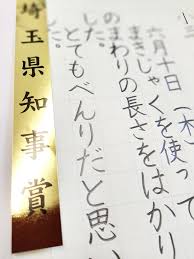 小三
六月十日(木
まきじゃくを使って
のまわりの長さをはかり
した。
とてもべんりだと思い
した。
埼玉県知事賞